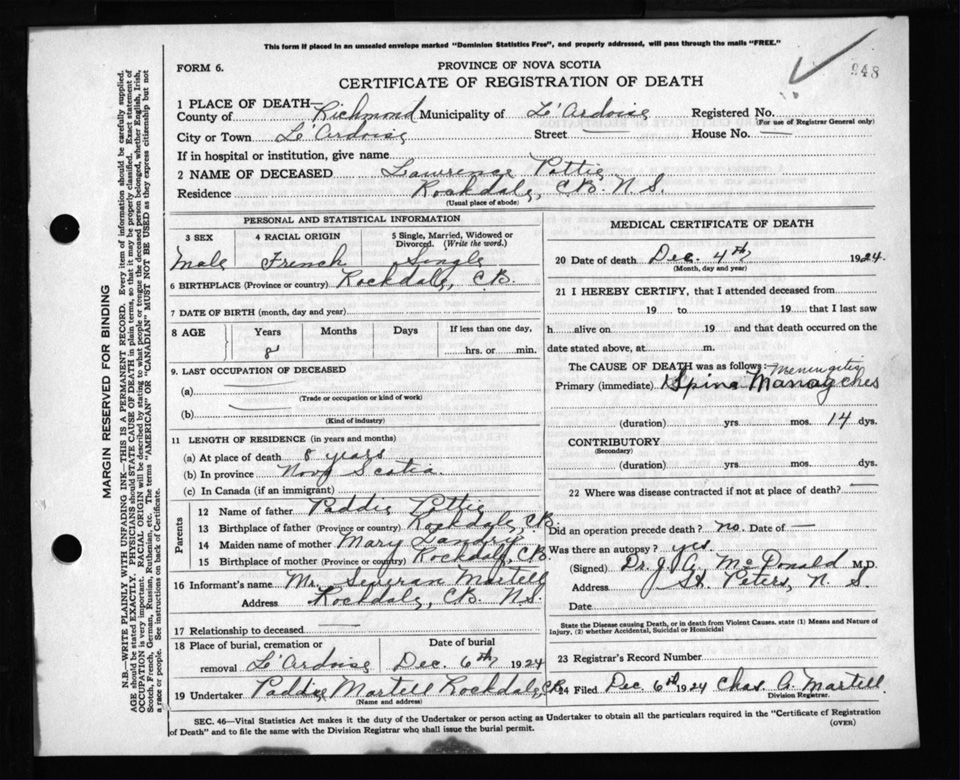 This form if placed in an unsealed envelope marked "Dominion Statistics Free", and properly addressed, will pass through the mails "FREE."
FORM 6.
PROVINCE OF NOVA SCOTIA
CERTIFICATE OF REGISTRATION OF DEATH
948
1 PLACE OF DEATH—
County of Richmond Municipality of L'Ardoise Registered No.
(For use of Registrar General only)
City or Town L'Ardoise Street — House No. —
If in hospital or institution, give name
2 NAME OF DECEASED Lawrence Pottie
Residence Rockdale, C.B. N.S.
(Usual place of abode)
PERSONAL AND STATISTICAL INFORMATION
3 SEX 4 RACIAL ORIGIN 5 Single, Married, Widowed or Divorced. (Write the word.)
Male French Single
6 BIRTHPLACE (Province or country) Rockdale, C.B.
7 DATE OF BIRTH (month, day and year)
8 AGE Years Months Days If less than one day,
8 hrs. or min.
9. LAST OCCUPATION OF DECEASED
(a) —
(Trade or occupation or kind of work)
(b) —
(Kind of industry)
11 LENGTH OF RESIDENCE (in years and months)
(a) At place of death 8 years
(b) In province Nova Scotia
(c) In Canada (if an immigrant)
Parents
12 Name of father Paddie Pottie
13 Birthplace of father (Province or country) Rockdale, C.B.
14 Maiden name of mother Mary Landry
15 Birthplace of mother (Province or country) Rockdale, C.B.
16 Informant's name Mr. Martell
Address Rockdale, C.B. N.S.
17 Relationship to deceased —
18 Place of burial, cremation or Date of burial
removal L'Ardoise Dec. 6th 1924
19 Undertaker Paddie Martell Rockdale, C.B.
(Name and address)
MEDICAL CERTIFICATE OF DEATH
20 Date of death Dec. 4th 1924.
(Month, day and year)
21 I HEREBY CERTIFY, that I attended deceased from
19 to 19 that I last saw
h alive on 19 and that death occurred on
date stated above, at m.
The CAUSE OF DEATH was as follows: Meningitis
Primary (immediate) Spine
(duration) yrs. mos. 14 dys.
CONTRIBUTORY
(Secondary)
(duration) yrs. mos. dys.
22 Where was disease contracted if not at place of death? —
Did an operation precede death? no. Date of —
Was there an autopsy? yes.
(Signed) Dr. J. A. McDonald M.D.
Address St. Peters, N. S.
Date
State the Disease causing Death, or in death from Violent Causes, state (1) Means and Nature of
Injury, (2) whether Accidental, Suicidal or Homicidal
23 Registrar's Record Number
24 Filed Dec. 6th 1924 Chas. A. Martell
Division Registrar.
SEC. 46—Vital Statistics Act makes it the duty of the Undertaker or person acting as Undertaker to obtain all the particulars required in the "Certificate of Registration
of Death" and to file the same with the Division Registrar who shall issue the burial permit.
(OVER)
MARGIN RESERVED FOR BINDING
N.B.—WRITE PLAINLY WITH UNFADING INK—THIS IS A PERMANENT RECORD. Every item of information should be carefully supplied.
AGE should be stated EXACTLY. PHYSICIANS should STATE CAUSE OF DEATH in plain terms, so that it may be properly classified. Exact statement of
OCCUPATION is very important. RACIAL ORIGIN will be described by stating to what people or tongue the deceased person belonged, whether English, Irish,
Scotch, French, German, Russian, Ruthenian, etc. The terms "AMERICAN" OR "CANADIAN" MUST NOT BE USED as they express citizenship but not
a race or people. See instructions on back of Certificate.